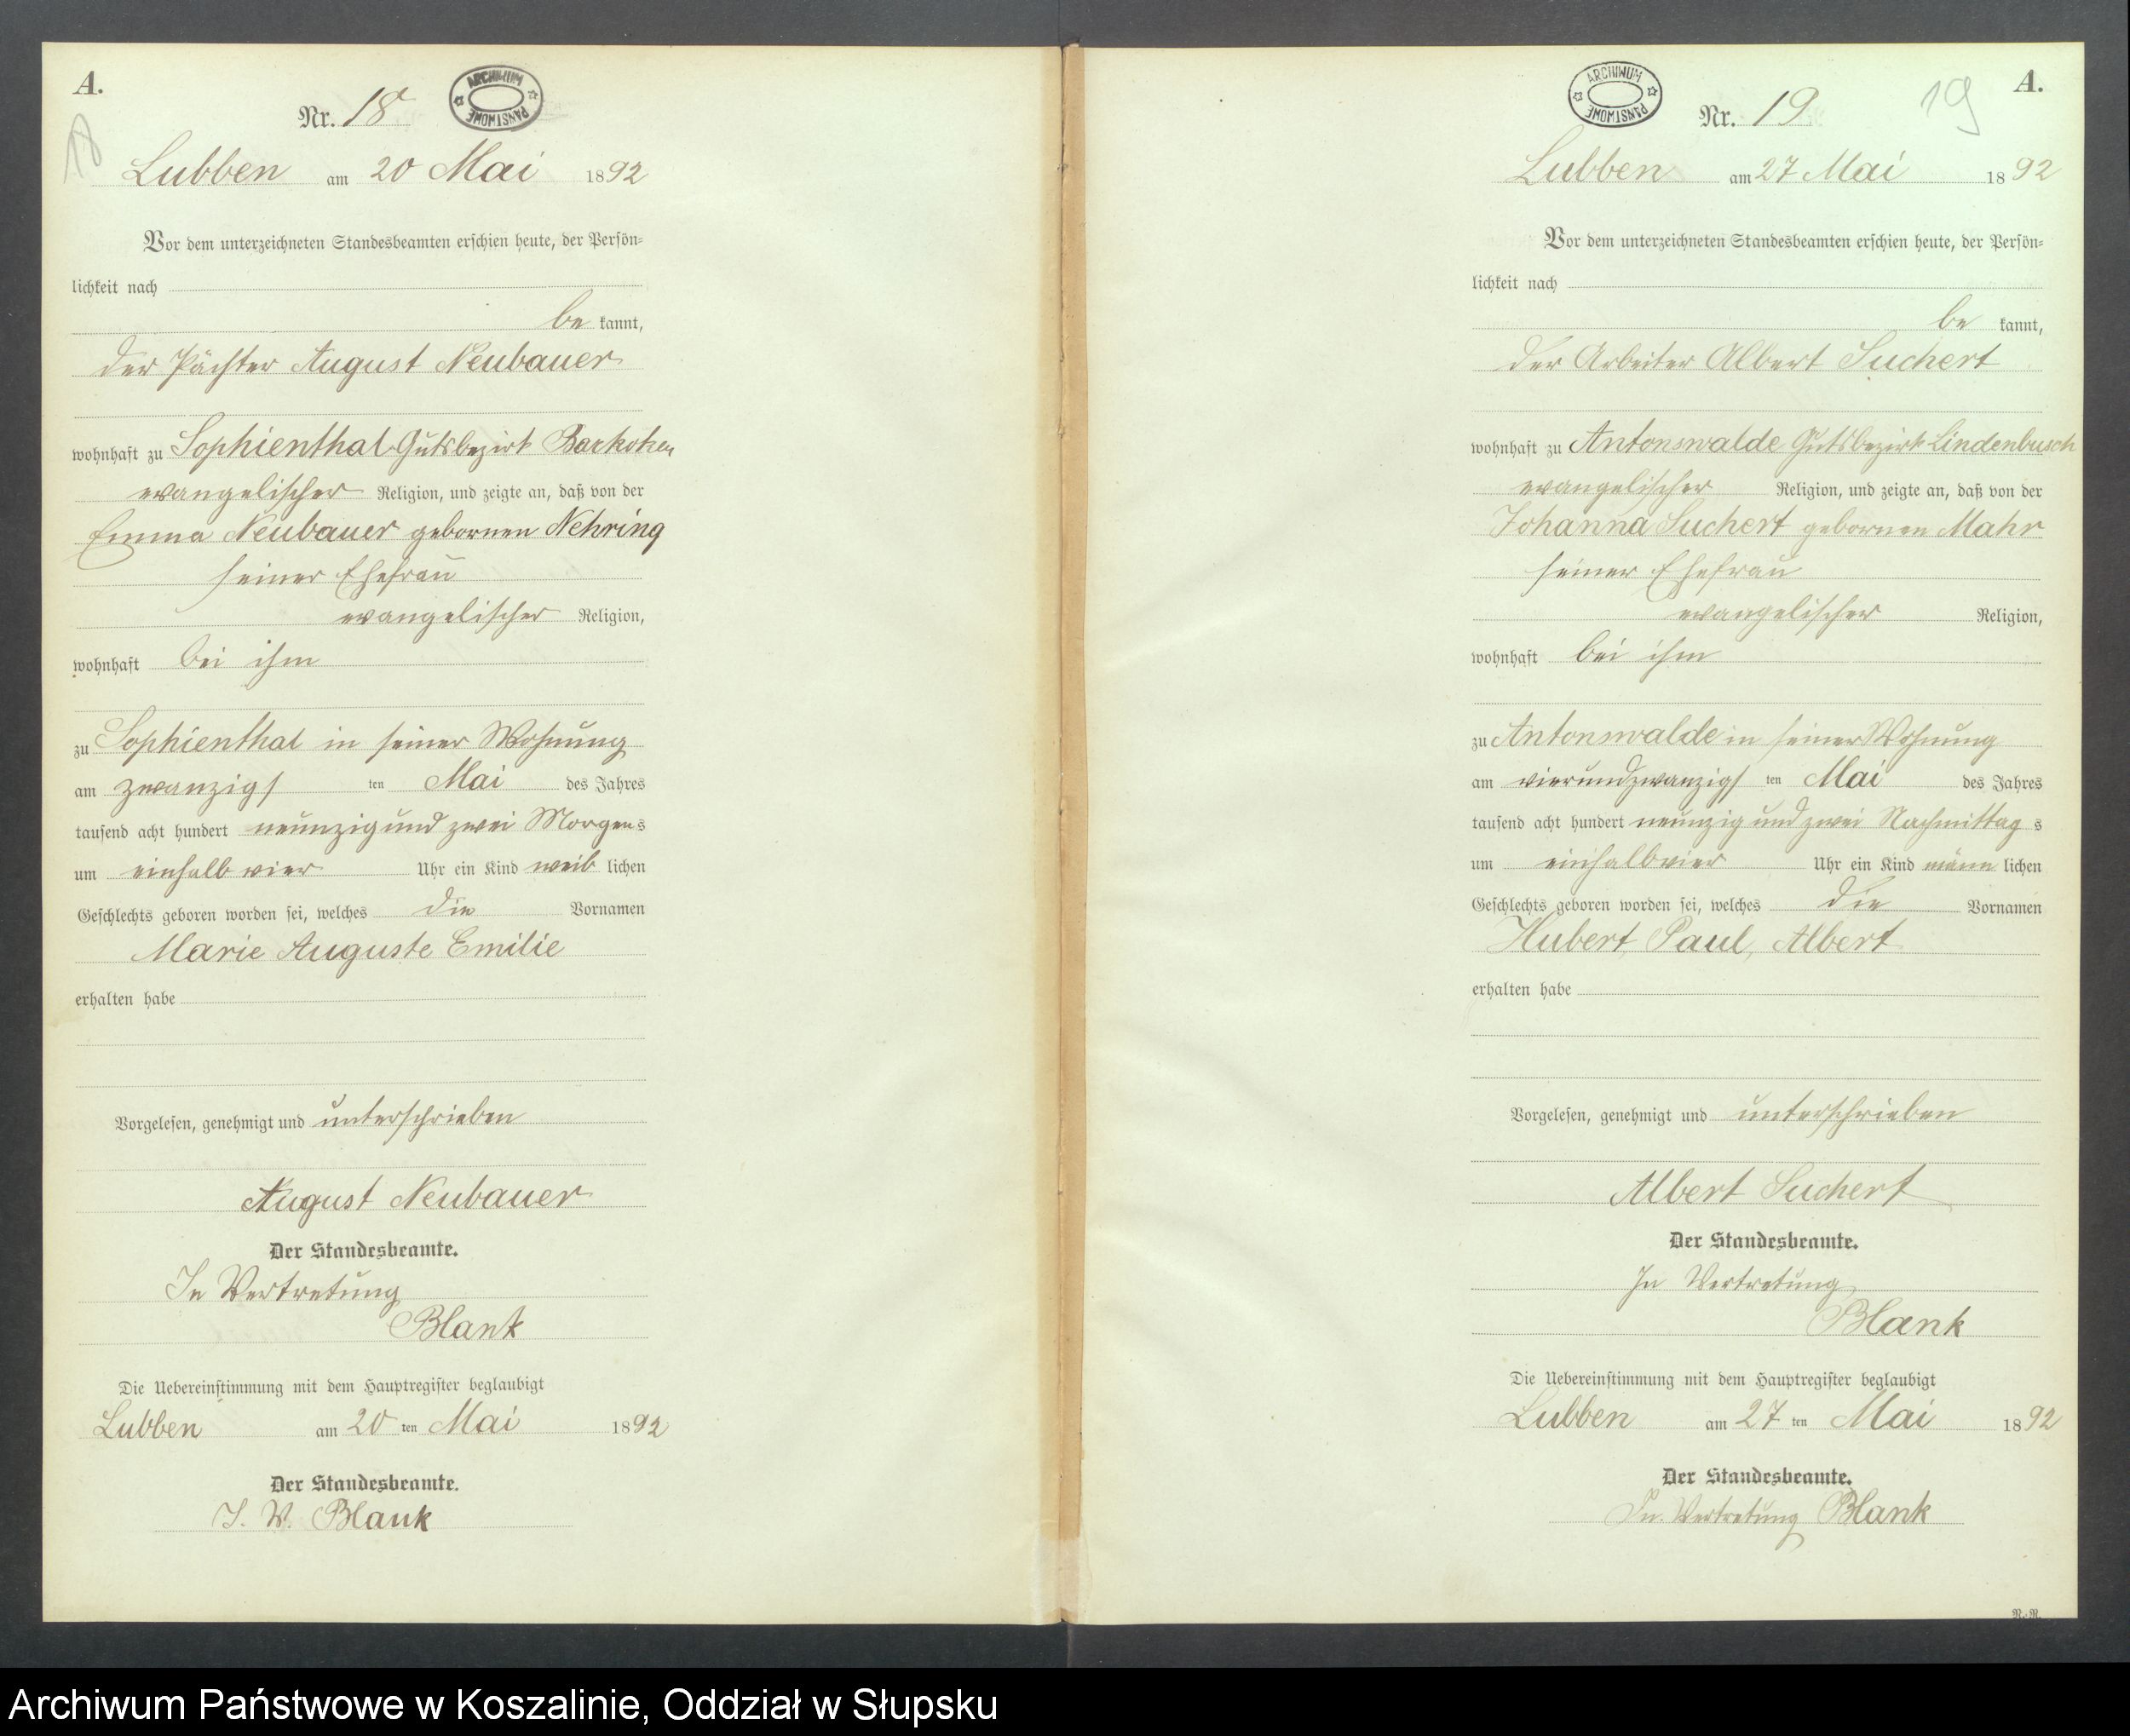 A.
Nr. 18
ARCHIWUM PAŃSTWOWE
18
Lubben am 20 Mai 1892
Vor dem unterzeichneten Standesbeamten erschien heute, der Persön=
lichkeit nach
be kannt,
der Pächter August Neubauer
wohnhaft zu Sophienthal Gutsbezirk Barkotzen
evangelischer Religion, und zeigte an, daß von der
Emma Neubauer gebornen Nehring
seiner Ehefrau
evangelischer Religion,
wohnhaft bei ihm
zu Sophienthal in seiner Wohnung
am zwanzigs ten Mai des Jahres
tausend acht hundert neunzig und zwei Morgens
um einhalb vier Uhr ein Kind weib lichen
Geschlechts geboren worden sei, welches die Vornamen
Marie Auguste Emilie
erhalten habe
Vorgelesen, genehmigt und unterschrieben
August Neubauer
Der Standesbeamte.
In Vertretung
Blank
Die Uebereinstimmung mit dem Hauptregister beglaubigt
Lubben am 20 ten Mai 1892
Der Standesbeamte.
I. V. Blank
A.
ARCHIWUM PAŃSTWOWE
Nr. 19
19
Lubben am 27 Mai 1892
Vor dem unterzeichneten Standesbeamten erschien heute, der Persön=
lichkeit nach
be kannt,
der Arbeiter Albert Suchert
wohnhaft zu Antonswalde Gutsbezirk Lindenbusch
evangelischer Religion, und zeigte an, daß von der
Johanna Suchert gebornen Mahr
seiner Ehefrau
evangelischer Religion,
wohnhaft bei ihm
zu Antonswalde in seiner Wohnung
am vierundzwanzigs ten Mai des Jahres
tausend acht hundert neunzig und zwei Nachmittag s
um einhalb vier Uhr ein Kind männ lichen
Geschlechts geboren worden sei, welches die Vornamen
Hubert, Paul, Albert
erhalten habe
Vorgelesen, genehmigt und unterschrieben
Albert Suchert
Der Standesbeamte.
In Vertretung
Blank
Die Uebereinstimmung mit dem Hauptregister beglaubigt
Lubben am 27 ten Mai 1892
Der Standesbeamte.
In Vertretung Blank
Archiwum Państwowe w Koszalinie, Oddział w Słupsku